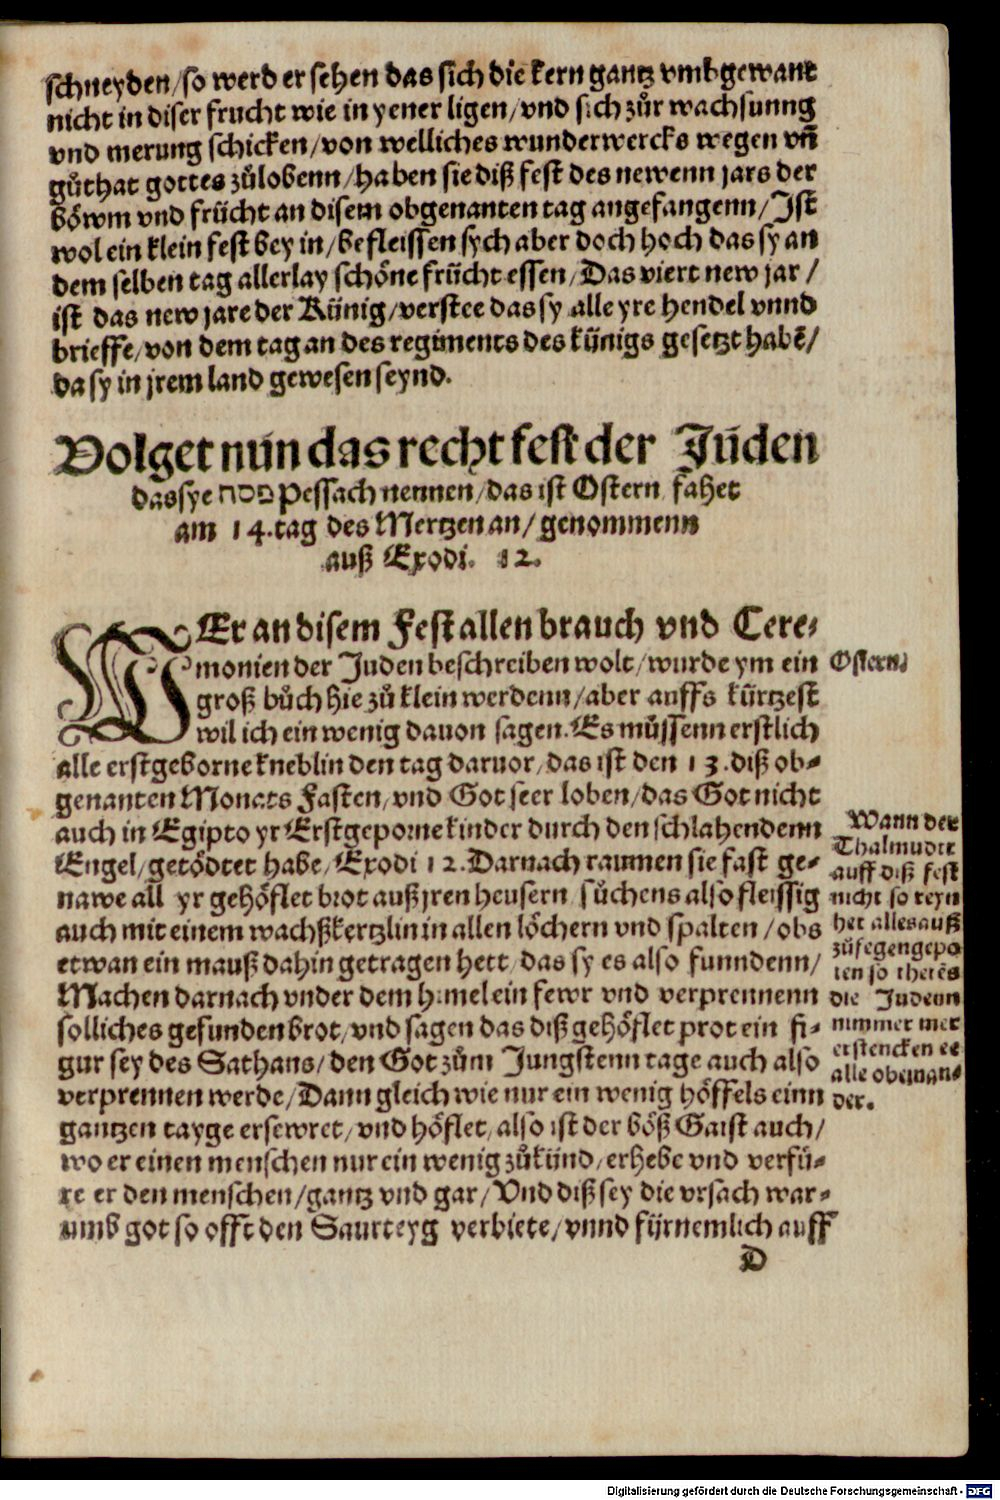 schneyden/so werd er sehen das sich die kern gantz vmbgewant
nicht in diser frucht wie in yener ligen/vnd sich zůr wachsunng
vnd merung schicken/von welliches wunderwercks wegen vñ
gůthat gottes zůlobenn/haben sie diß fest des newenn jars der
bőwm vnd frücht an disem obgenanten tag angefangenn/Jst
wol ein klein fest bey in/befleissen sych aber doch hoch das sy an
dem selben tag allerlay schőne frücht essen/Das viert new jar/
ist das new jare der Künig/verstee das sy alle yre hendel vnnd
brieffe/von dem tag an des regiments des künigs gesetzt habẽ/
da sy in jrem land gewesen seynd.
Volget nun das recht fest der Juden
das sye פסח Pessach nennen/das ist Ostern fahet
am 14.tag des Mertzen an/genommenn
auß Exodi. 12.
WEr an disem Fest allen brauch vnd Cere-
monien der Juden beschreiben wolt/wurde ym ein
groß bůch hie zů klein werdenn/aber auffs kürtzest
wil ich ein wenig dauon sagen.Es můssenn erstlich
alle erstgeborne kneblin den tag daruor/das ist den 13.diß ob-
genanten Monats Fasten/vnd Got seer loben/das Got nicht
auch in Egipto yr Erstgeporne kinder durch den schlahendenn
Engel/getődtet habe/Exodi 12.Darnach raumen sie fast ge-
nawe all yr gehőflet brot auß jren heusern sůchens also fleissig
auch mit einem wachßkertzlin in allen lőchern vnd spalten/obs
etwan ein mauß dahin getragen hett/das sy es also funndenn/
Machen darnach vnder dem himel ein fewr vnd verprennenn
solliches gefunden brot/vnd sagen das diß gehőflet prot ein fi-
gur sey des Sathans/den Got zům Jungstenn tage auch also
verprennen werde/Dann gleich wie nur ein wenig hőffels einn
gantzen tayge ersewret/vnd hőflet/also ist der bőß Gaist auch/
wo er einen menschen nur ein wenig zůkünd/erhebe vnd verfü-
re er den menschen/gantz vnd gar/Vnd diß sey die vrsach war-
umb got so offt den Saurteyg verbiete/vnnd fürnemlich auff
D
Ostern.
Wann der
Thalmudit
auff diß fest
nicht so reyn
het alles auß
zůfegen gepo
ten so thetẽs
die Judenn
nimmer mer
erstencken ee
alle obeinan-
der.
Digitalisierung gefördert durch die Deutsche Forschungsgemeinschaft - DFG